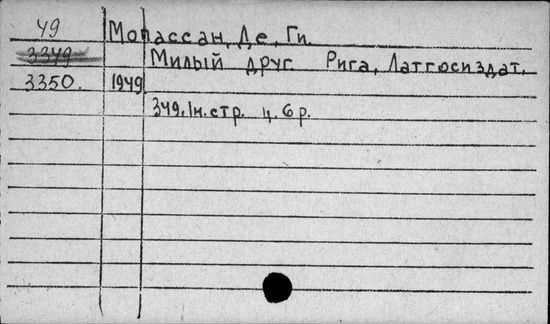 49 Мопассан, Де, Ги.
3349 Милый друг Рига, Латгосиздат.
3350. 1949
349,1н.стр. ц. 6 р.